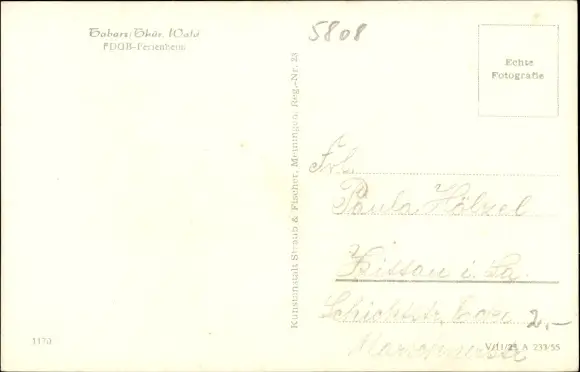 Tabarz/Thür. Wald
FDGB-Ferienheim
5808
Echte
Fotografie
Kunstanstalt Straub & Fischer, Meiningen, Reg.-Nr. 25
Frl.
Paula Hölzel
Zittau i. Sa.
2,-
1170
V/11/28 A 233/55